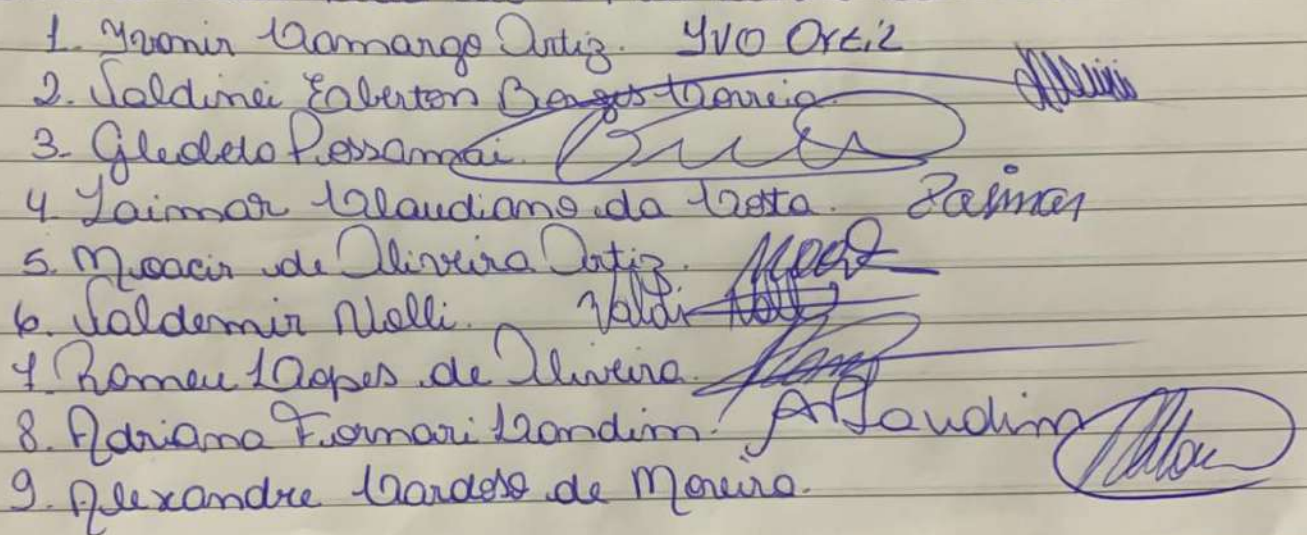 1. Ivonir Camargo Ortiz. YVO Ortiz
2. Valdinei Eoberton Borges Correia.
3. Gledelo Possamai.
4. Laimar Claudiano da Costa. Laimar
5. Moacir de Oliveira Ortiz.
6. Valdemir Nolli. Valdi Nolli
7 Romeu Lopes de Oliveira.
8. Adriana Fornari Gandim.
9. Alexandre Cardoso de Moreira.